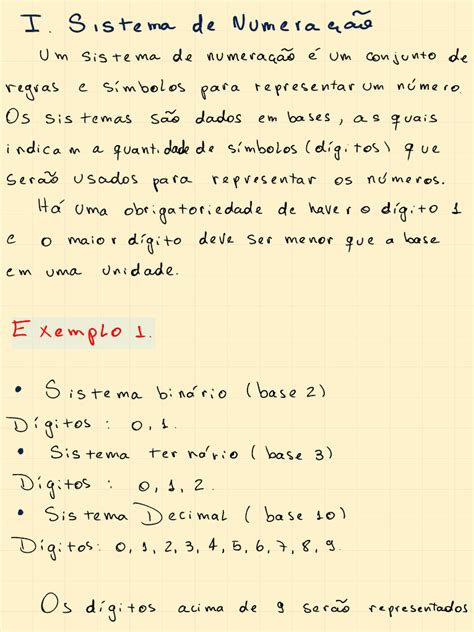 I. Sistema de Numeração
Um sistema de numeração é um conjunto de
regras e símbolos para representar um número.
Os sistemas são dados em bases, as quais
indicam a quantidade de símbolos (dígitos) que
serão usados para representar os números.
Há uma obrigatoriedade de haver o dígito 1
e o maior dígito deve ser menor que a base
em uma unidade.
Exemplo 1.
• Sistema binário (base 2)
Dígitos : 0, 1.
• Sistema ternário (base 3)
Dígitos : 0, 1, 2.
• Sistema Decimal (base 10)
Dígitos: 0, 1, 2, 3, 4, 5, 6, 7, 8, 9.
Os dígitos acima de 9 serão representados